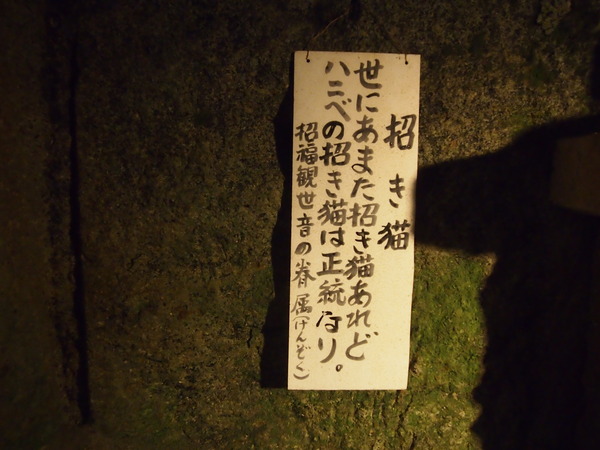 招き猫
世にあまた招き猫あれど
ハニベの招き猫は正統なり。
招福観世音の眷属(けんぞく)